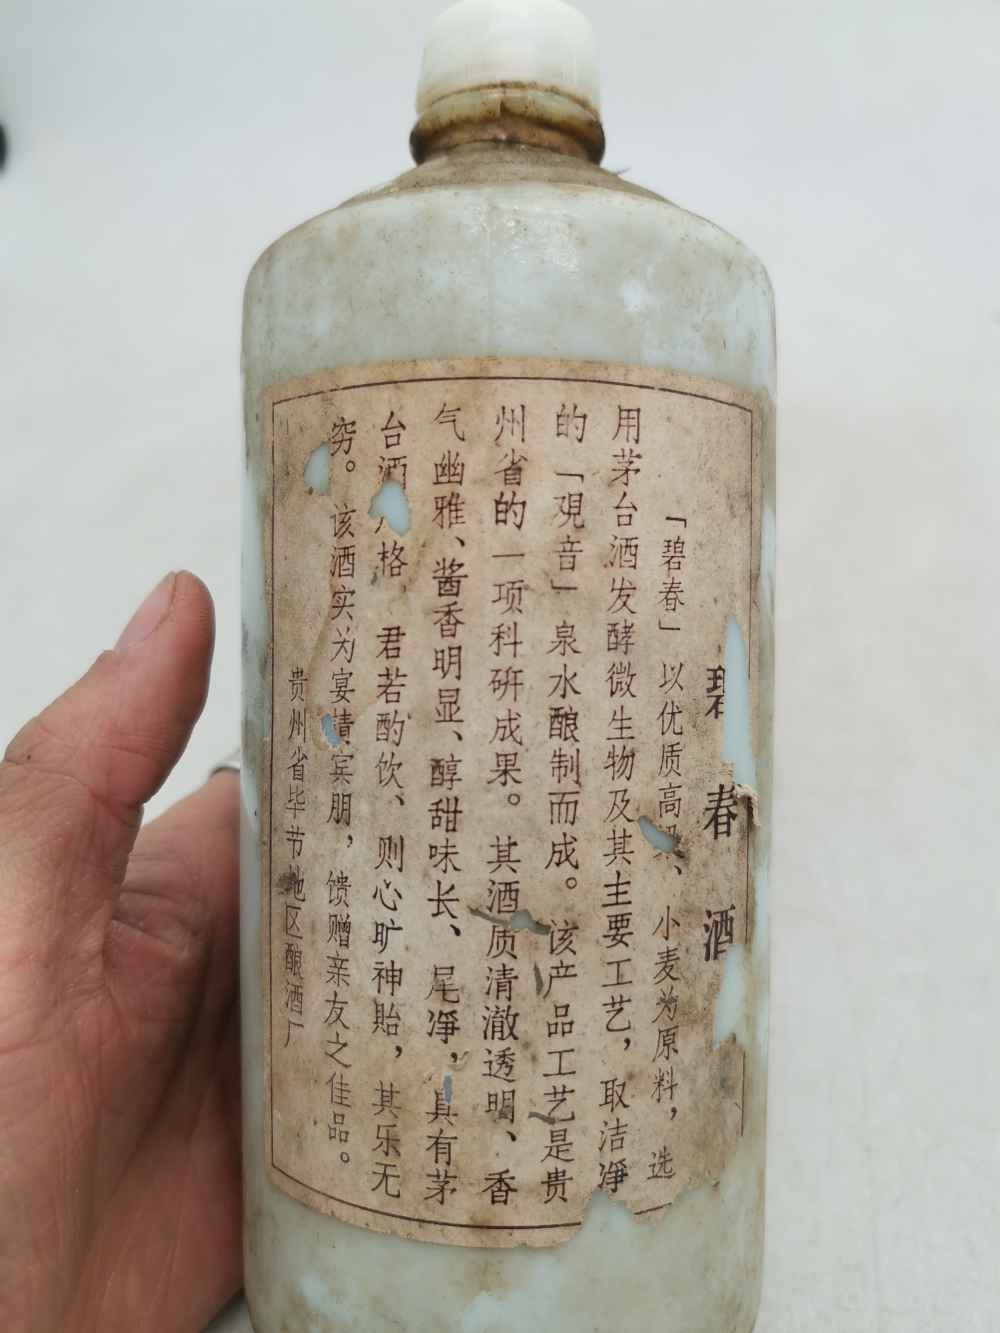 碧春酒
「碧春」以优质高、小麦为原料，选
用茅台酒发酵微生物及其主要工艺，取洁净
的「观音」泉水酿制而成。该产品工艺是贵
州省的一项科研成果。其酒质清澈透明、香
气幽雅、酱香明显、醇甜味长、尾净，具有茅
台酒格 君若酌饮、则心旷神贻，其乐无
穷。该酒实为宴请宾朋，馈赠亲友之佳品。
贵州省毕节地区酿酒厂